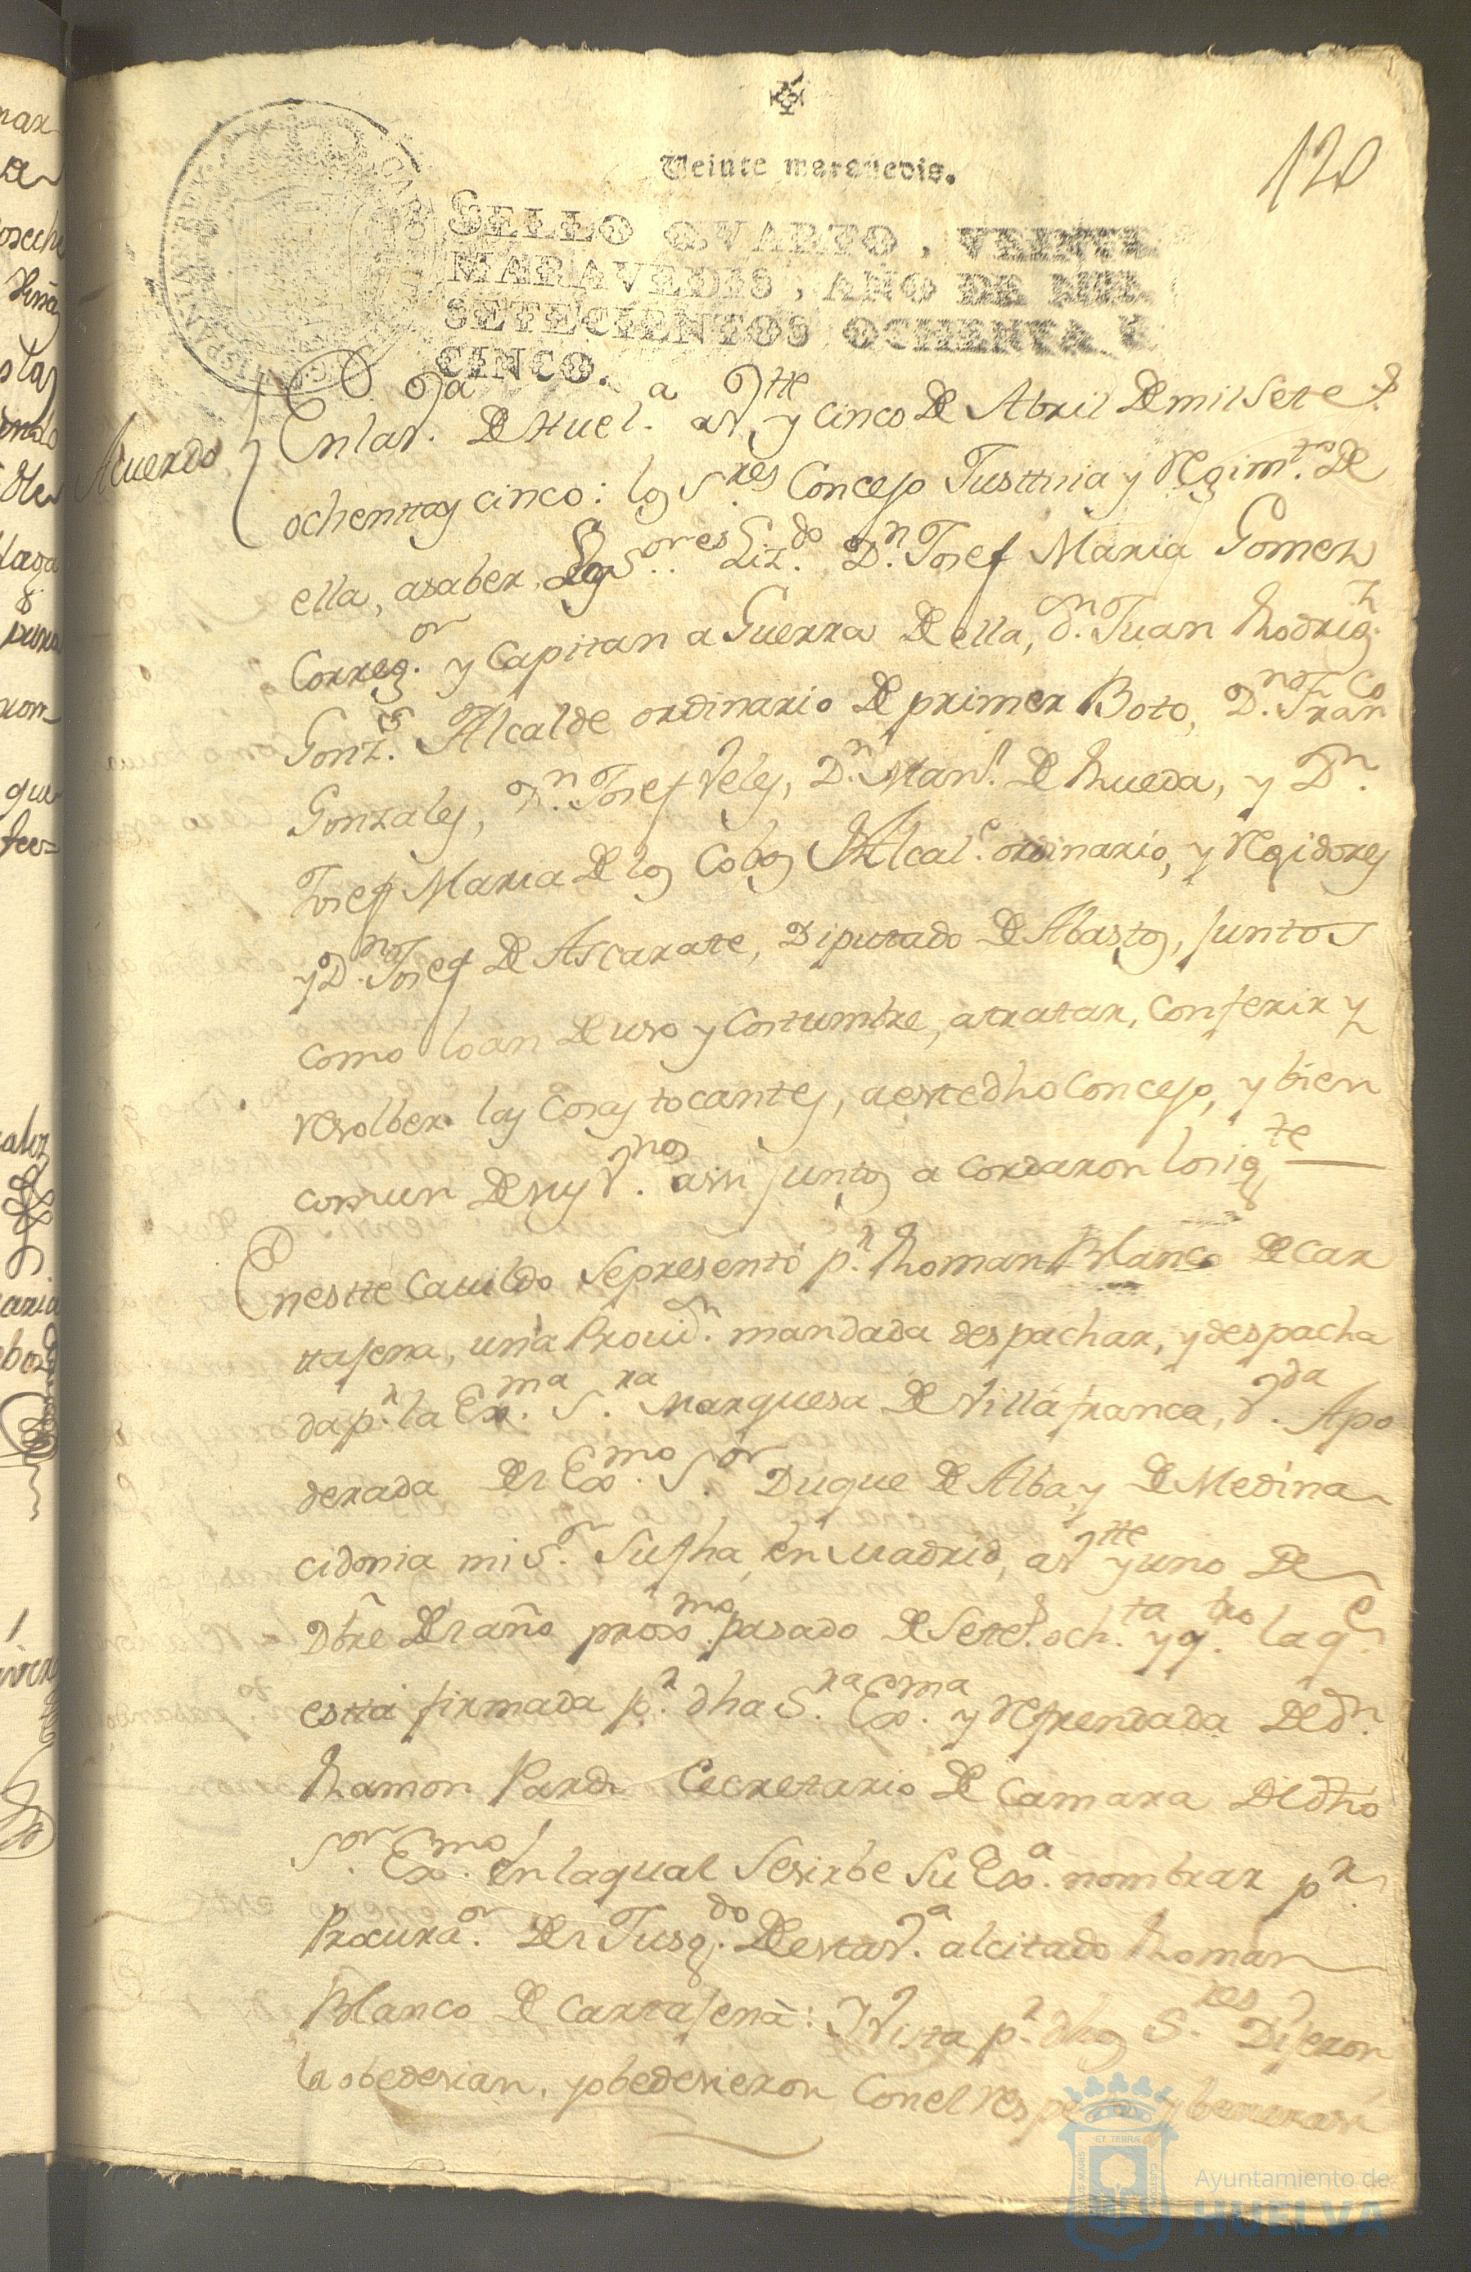 120
Veinte marauedis.
SELLO QVARTO, VEINTE
MARAVEDIS, AÑO DE MIL
SETECIENTOS OCHENTA Y
CINCO.
Acuerdo
En la v.ª de Huel.ª a v.tte y cinco de Abril de mil sete.s
ochentta y cinco: los S.res Concejo Justtiia y Regim.to de
ella, asaber, los S.ores Liz.do D.n Josef Maria Gomez
Correg.or y Capitan a Guerra de ella, d.n Juan Rodrig.z
Gonz.s Alcalde ordinario de primer Boto, D.n Fran.co
Gonzales, D.n Josef Veles, D.n Man.l de Rueda, y D.n
Josef Maria de los Cobos Alcal.e ordinario, y Regidores
y D.n Josef de Ascarate, Diputado de Abastos, juntos
como lo an de uso y Costumbre, a tratar, conferir y
resolber las Cosas tocantes, a este dho Concejo, y bien
comun de sus v.nos assi juntos a cordaron lo sig.te
En estte Cauildo se presentó p.r Roman Blanco de Car
ttajena, una Provid.n mandada despachar, y despacha
da p.r la Ex.ma S.ra Marquesa de Villafranca, v.da Apo
derada del Ex.mo S.or Duque de Alba, y de Medina
cidonia mi S.or Su fha en Madrid, a v.tte y uno de
Dbre del año proxi.mo pasado de sete.s och.ta y q.tro la q.e
estta firmada p.r dha S.ra Ex.ma y Refrendada de d.n
Ramon Pardo Cecretario de Camara de dho
S.or Ex.mo en la qual se sirbe su Ex.a nombrar p.r
Procura.or del Jusg.do de esta v.a al citado Roman
Blanco de Carttajena: Y vista p.r dhos S.res Dijeron
la obedesian, y obedesieron Con el respeto y benerasi
ET TERRÆ
Ayuntamiento de
HUELVA